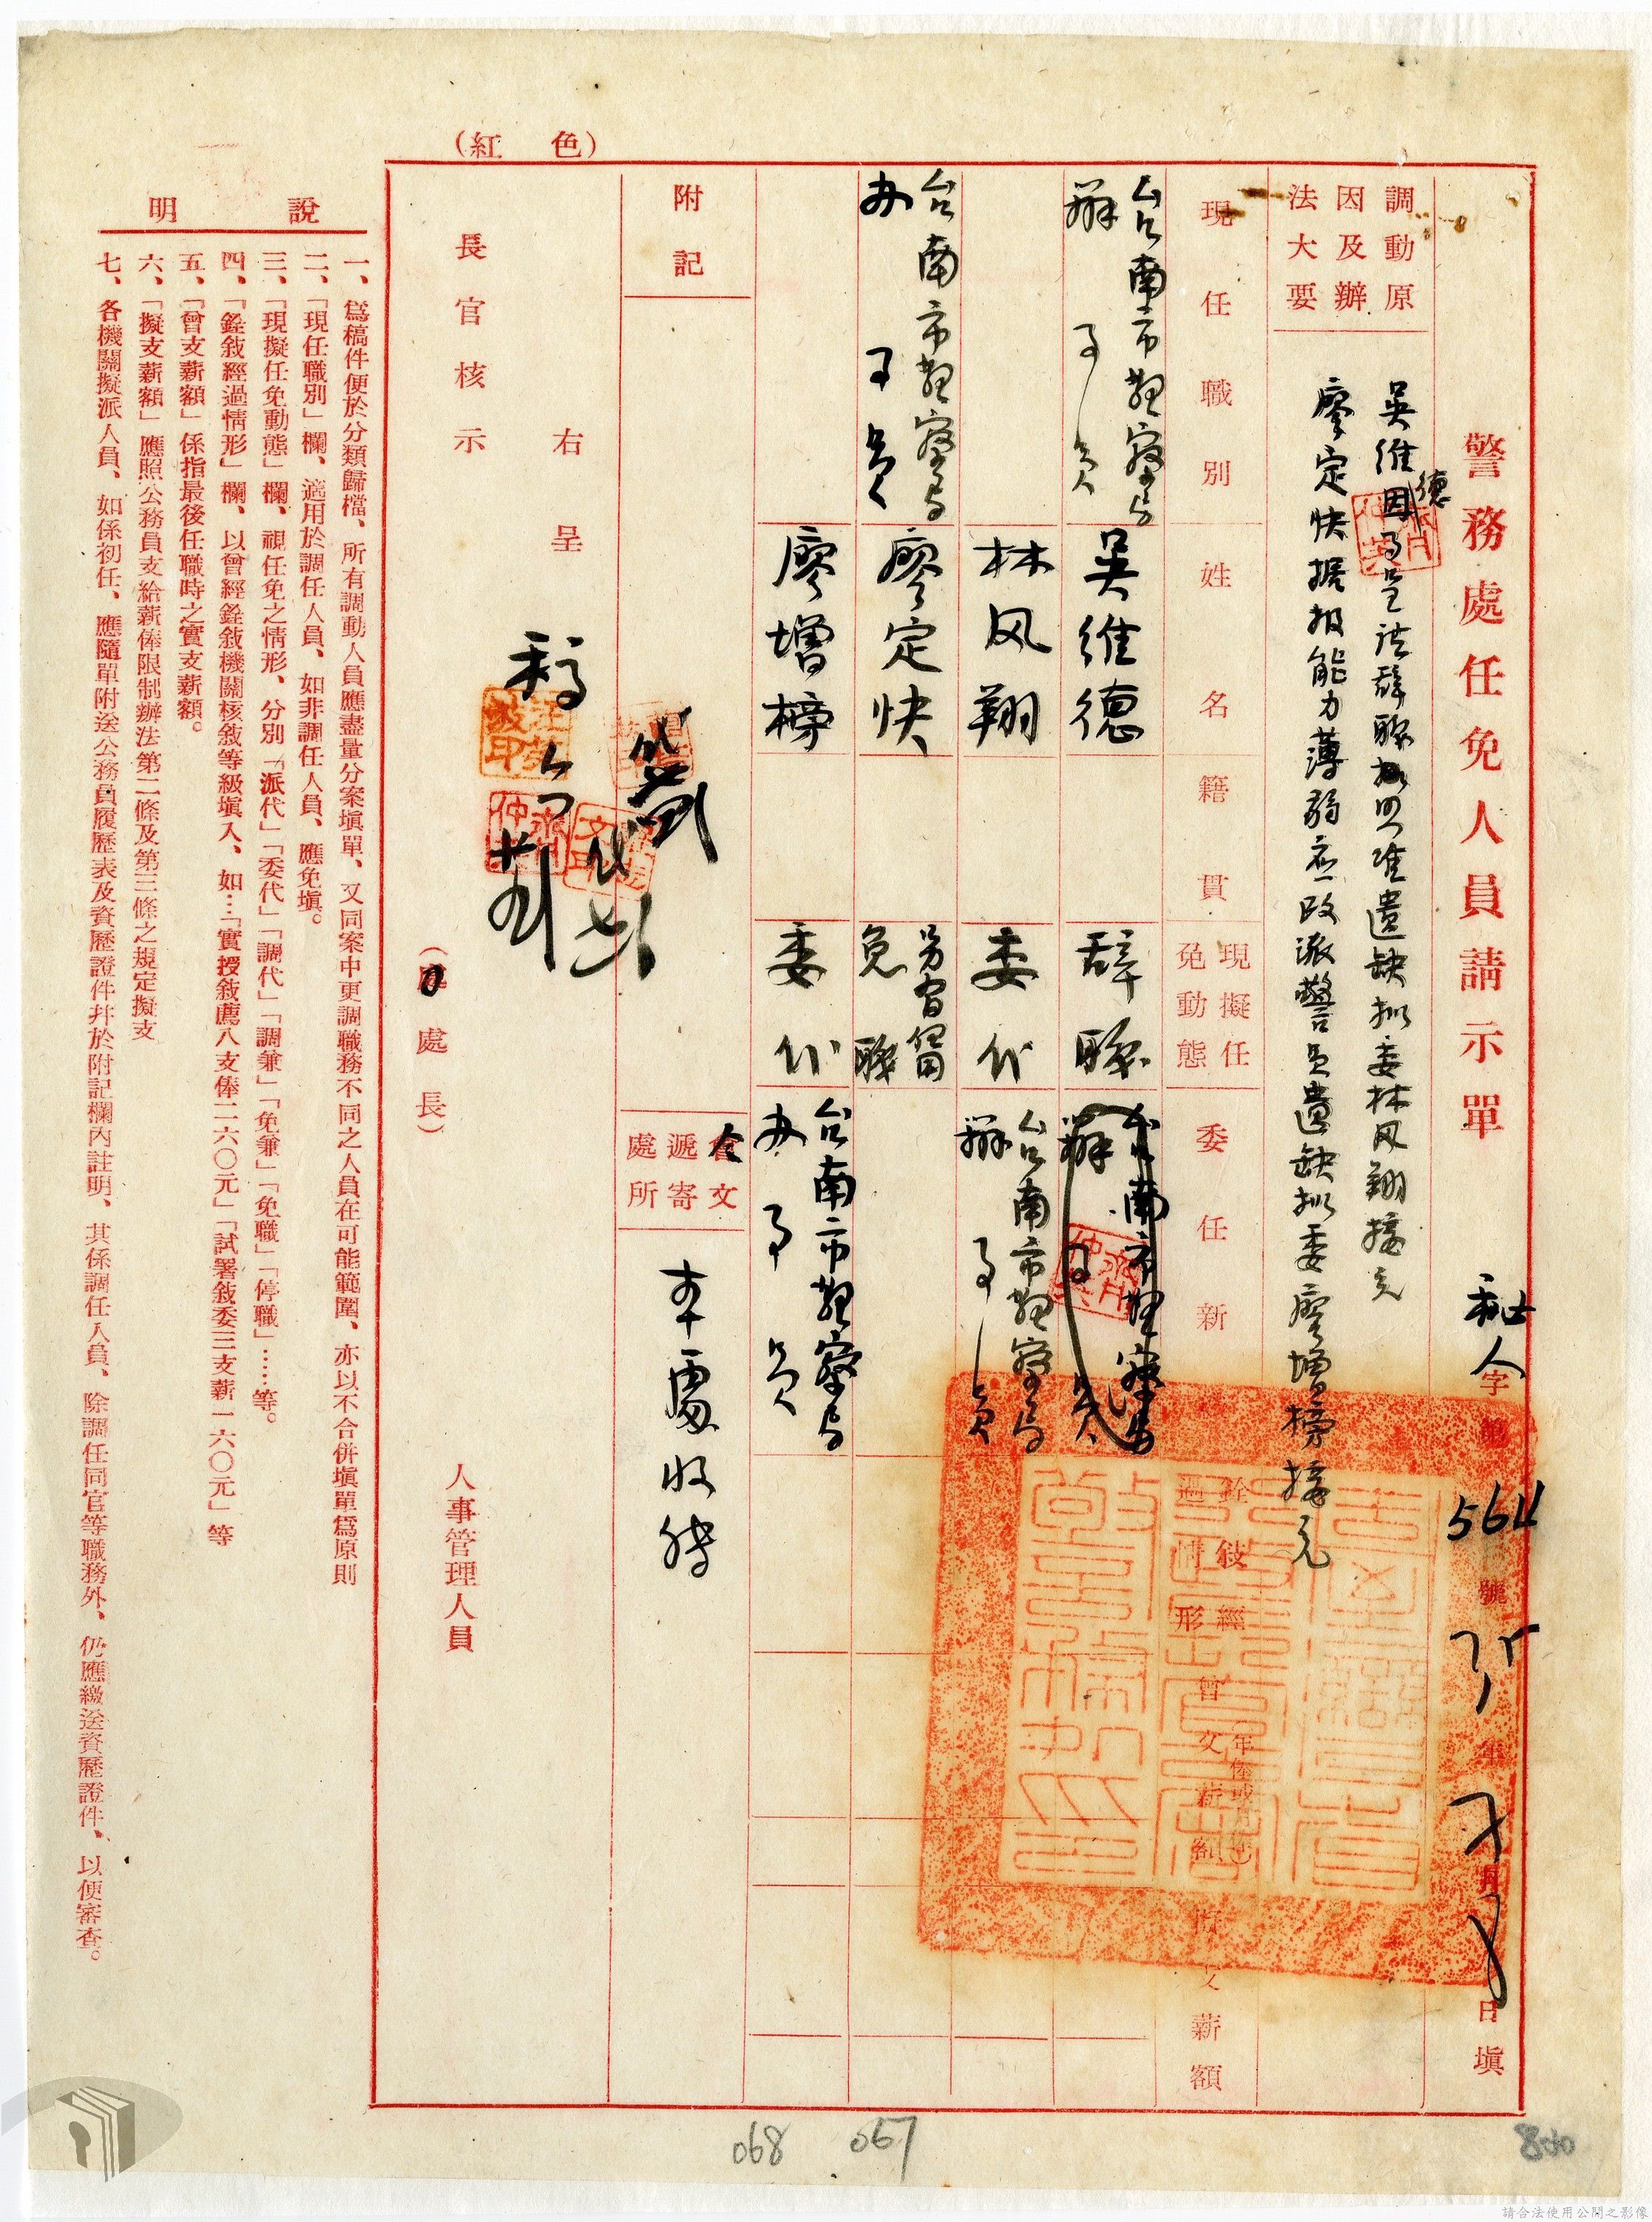 (紅 色)
警務處任免人員請示單
秘人字第564號 35年 月 日填
調動原因及辦法大要
吳維德因事呈請辭職擬照准遺缺擬委林风翔接充
廖定快据报能力薄弱应改派警員遺缺拟委廖增榜接充
現任職別
姓名
籍貫
現擬任免動態
委任新
銓敍經過情形
曾支薪額
擬支薪額
台南市警察局
辦事員
吳維德
辞職
台南市警察局
辦事員
林风翔
委代
台南市警察局
辦事員
台南市警察局
办事員
廖定快
另有留
免職
廖增榜
委代
台南市警察局
办事員
附記
令文遞寄處所
本處收轉
右呈
長官核示
(處長)
人事管理人員
說明
一、爲稿件便於分類歸檔、所有調動人員應盡量分案塡單、又同案中更調職務不同之人員在可能範圍、亦以不合併塡單爲原則
二、「現任職別」欄、適用於調任人員、如非調任人員、應免塡。
三、「現擬任免動態」欄、視任免之情形、分別「派代」「委代」「調代」「調兼」「免兼」「免職」「停職」……等。
四、「銓敍經過情形」欄、以曾經銓敍機關核敍等級塡入、如…「實授敍薦八支俸二六〇元」「試署敍委三支薪一六〇元」等
五、「曾支薪額」係指最後任職時之實支薪額。
六、「擬支薪額」應照公務員支給薪俸限制辦法第二條及第三條之規定擬支
七、各機關擬派人員、如係初任、應隨單附送公務員履歷表及資歷證件幷於附記欄內註明、其係調任人員、除調任同官等職務外、仍應繳送資歷證件、以便審查。
068
067
請合法使用公開之影像